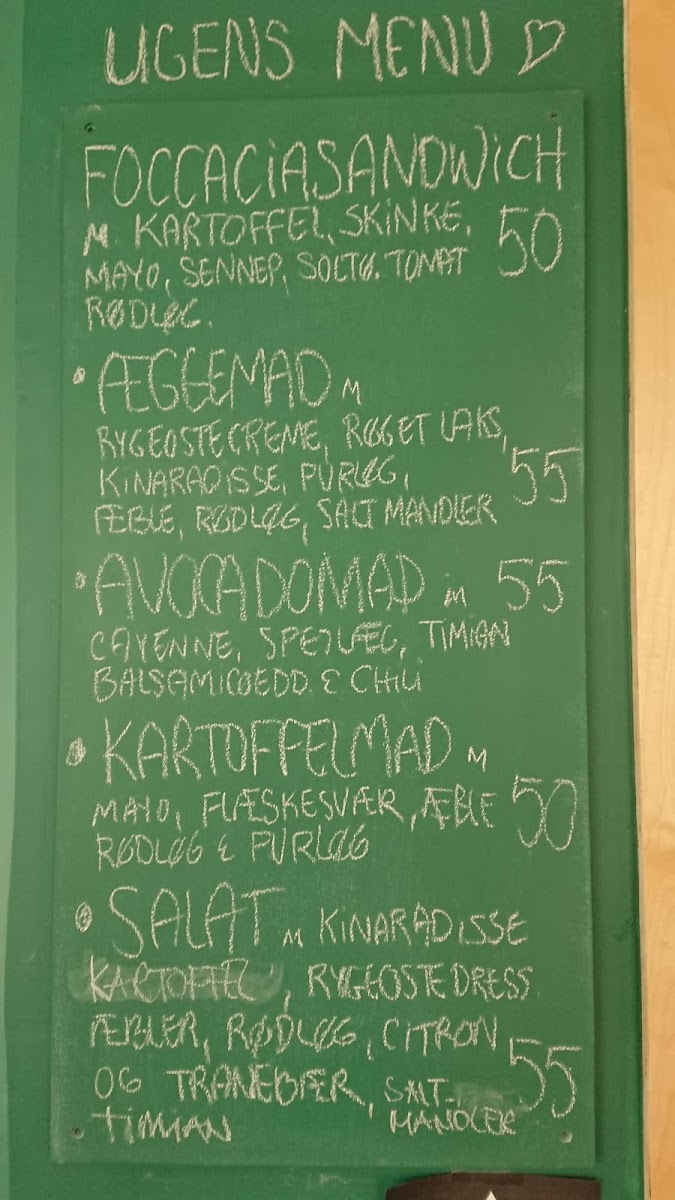 UGENS MENU ♡
FOCCACIASANDWICH
M KARTOFFEL, SKINKE, 50
MAYO, SENNEP, SOLTØ. TOMAT
RØDLØG.
• ÆGGEMAD M
RYGEOSTECREME, RØGET LAKS,
KINARADISE, PURLØG, 55
ÆBLE, RØDLØG, SALT MANDLER
• AVOCADOMAD M 55
CAYENNE, SPEJLÆG, TIMIAN
BALSAMICOEDD. & CHILI
• KARTOFFELMAD M
MAYO, FLÆSKESVÆR, ÆBLE 50
RØDLØG & PURLØG
• SALAT M KINARADISSE
KARTOFFEL, RYGEOSTEDRESS
ÆBLER, RØDLØG, CITRON
OG TRANEBÆR, SALT- 55
TIMIAN MANDLER